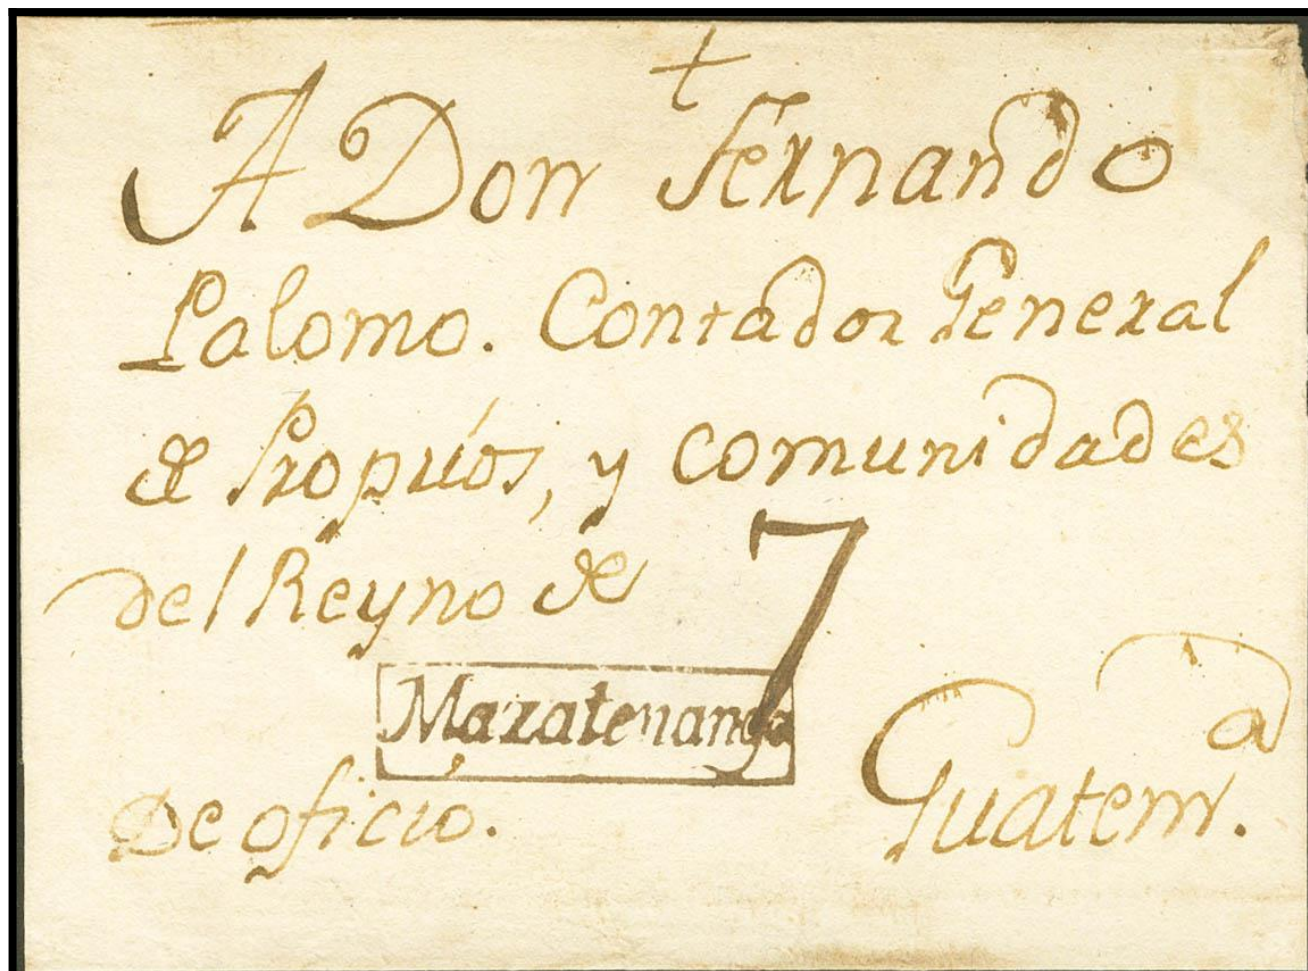 †
A Don Fernando
Palomo. Contador General
de Propríos, y comunidades
del Reyno de
7
Mazatenango
Guatemª.
De ofició.